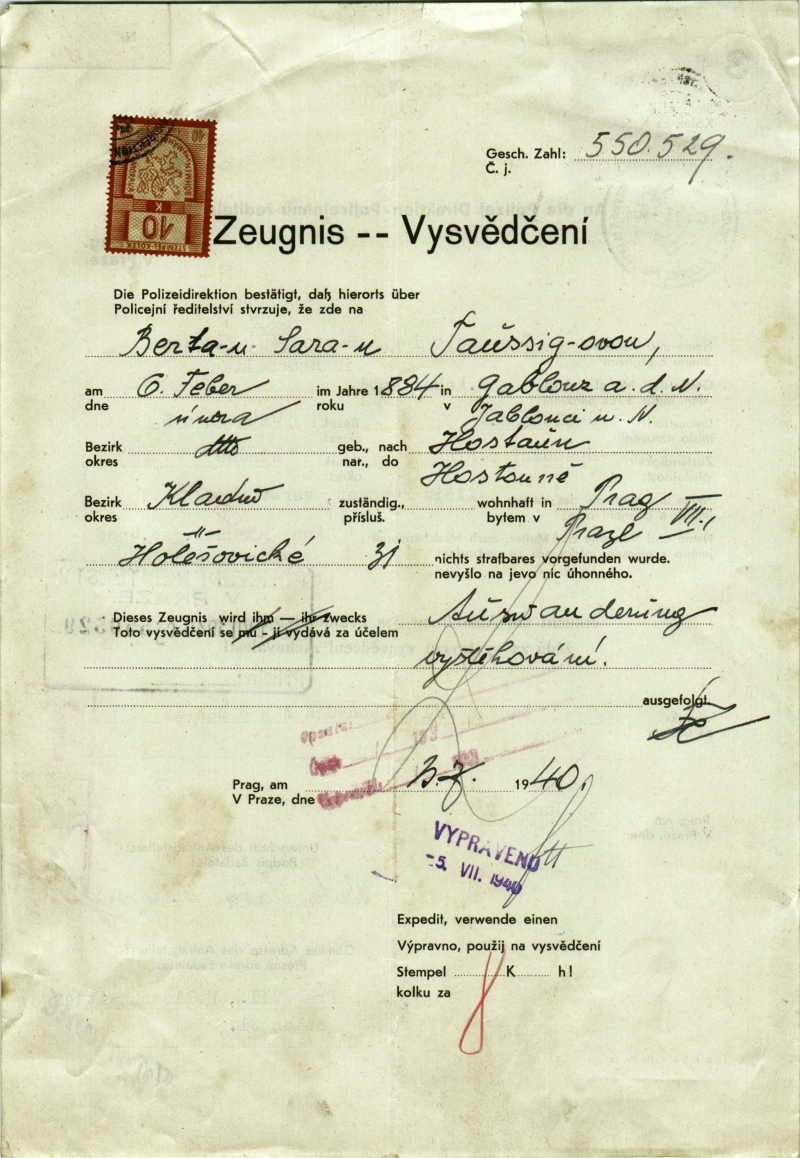 10
K
10
STEMPEL-KOLEK
Gesch. Zahl: 550.529.
Č. j.
Zeugnis -- Vysvědčení
Die Polizeidirektion bestätigt, daß hierorts über
Policejní ředitelství stvrzuje, že zde na
Berta-u Sara-u Taussig-ovou,
am 6. Feber im Jahre 1884 in Gablonz a. d. N.
dne února roku v Jablonci n. N.
Bezirk dtto geb., nach Hostaun
okres nar., do Hostouně
Bezirk Kladno zuständig., wohnhaft in Prag VII.,
okres přísluš. bytem v Praze
Holešovické 31 nichts strafbares vorgefunden wurde.
nevyšlo na jevo nic úhonného.
Dieses Zeugnis wird ihm — ihr zwecks Auswanderung
Toto vysvědčení se mu - jí vydává za účelem
vystěhování.
ausgefolgt.
Prag, am 3.7. 1940.
V Praze, dne
VYPRAVENO
-5. VII. 1940
Expedit, verwende einen
Výpravno, použij na vysvědčení
Stempel K h!
kolku za 8